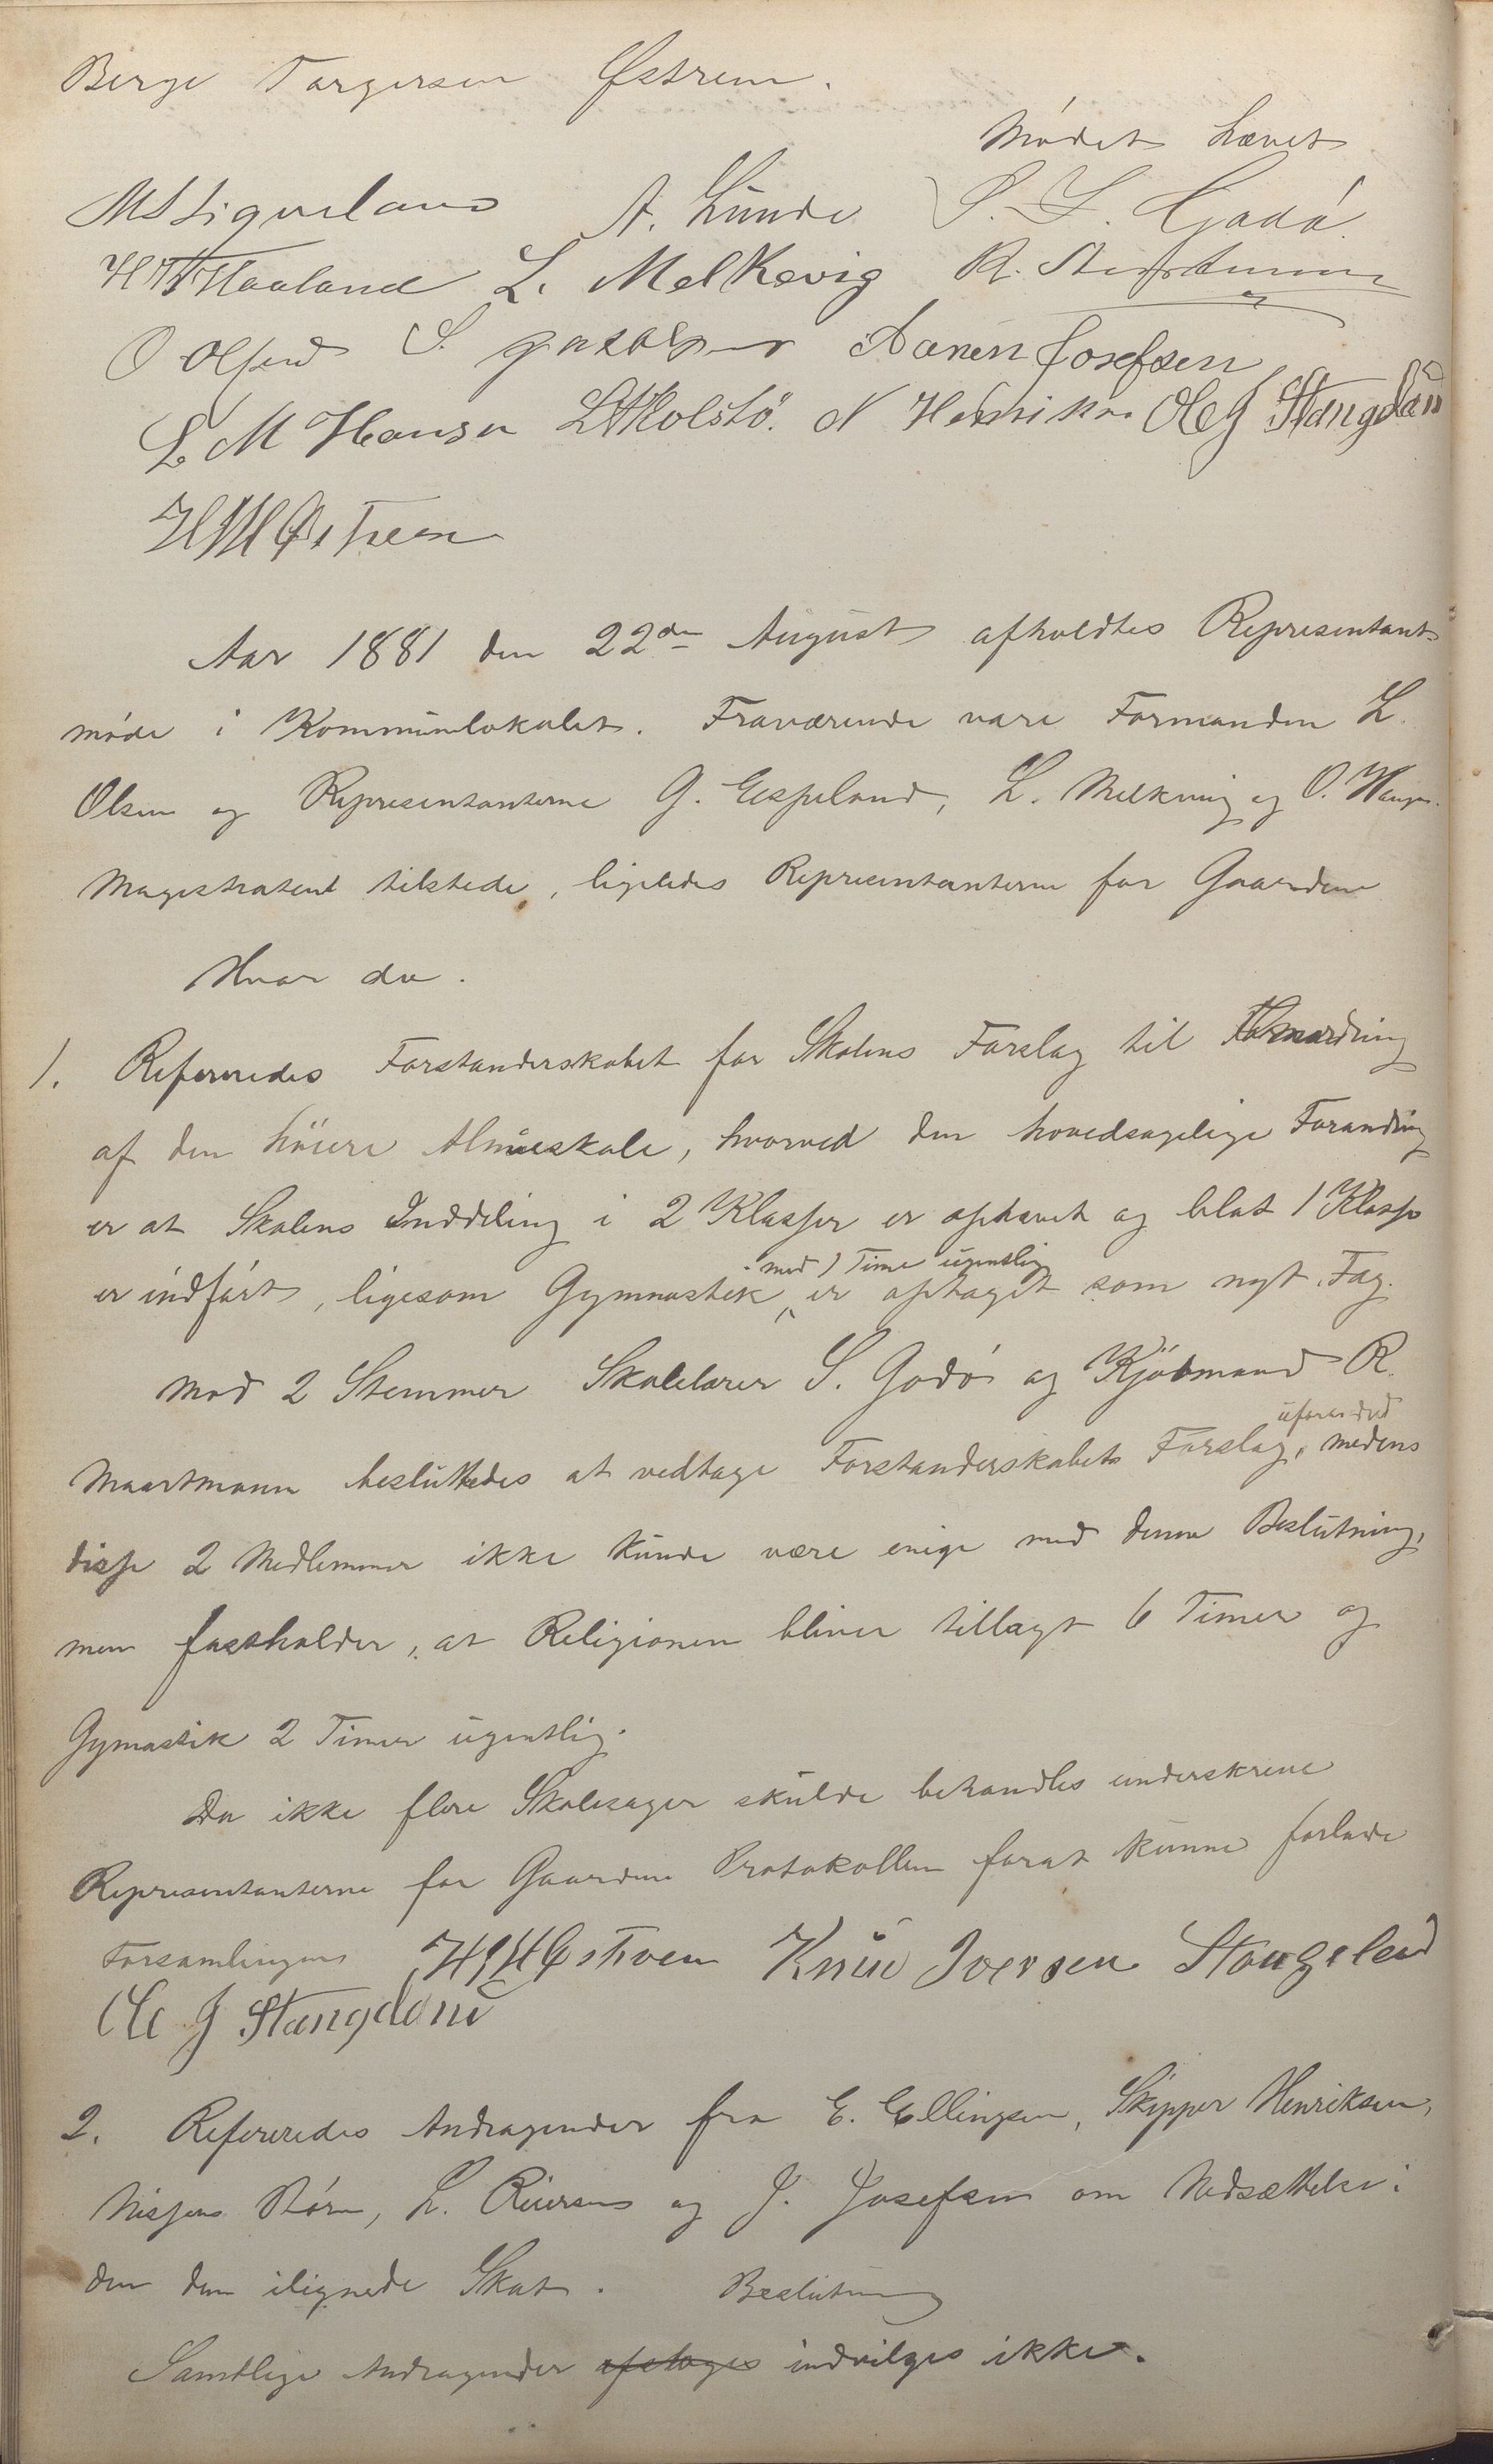 Berge Torgersen Østrem.
Mödet hævet
M S Liqueland A. Lunde S. S. Gadó
H T Haaland L. Melkevig R.
O Olsen S. Aanen Josefsen
L. M Hansen L H Holstö. N Henriksen Ole J Stangeland
H M Østrem
Aar 1881 den 22de August afholdtes Representant-
móde i Kommunelokalet. Fraværende vare Formanden L.
Olsen og Representanterne G. Eespeland, L. Melkevig og O. Hansen.
Magistraten tilstede, ligeledes Representanterne for Gaardene
Hvor da.
1. Refereredes Forstanderskabet for Skolens Forslag til
af den höiere Almueskole, hvorved den hovedsagelige Forandring
er at Skolens Inddeling i 2 Klasser er ophævet og blot 1 Klasse
er indfört, ligesom Gymnastik med 1 Time ugentlig er optaget som nyt Fag.
Mod 2 Stemmer Skolelærer S. Godó og Kjöbmand R.
Maartmann besluttedes at vedtage Forstanderskabets Forslag uforandret, medens
disse 2 Medlemmer ikke kunde være enige med denne Beslutning,
men fastholder, at Religionen bliver tillagt 6 Timer og
Gymastik 2 Timer ugentlig.
Da ikke flere Skolesager skulde behandles underskreve
Representanterne for Gaardene Protokollen forat kunne forlade
Forsamlingen H M Østrem Knud Iversen Stangeland
Ole J Stangeland
2. Refereredes Andragender fra E. Ellingsen, Skipper Henriksen,
Nissens Börn, L. Riversen og J. Josefsen om Nedsættelse i
den dem ilignede Skat. Beslutning
Samtlige Andragender afsloges indvilges ikke.